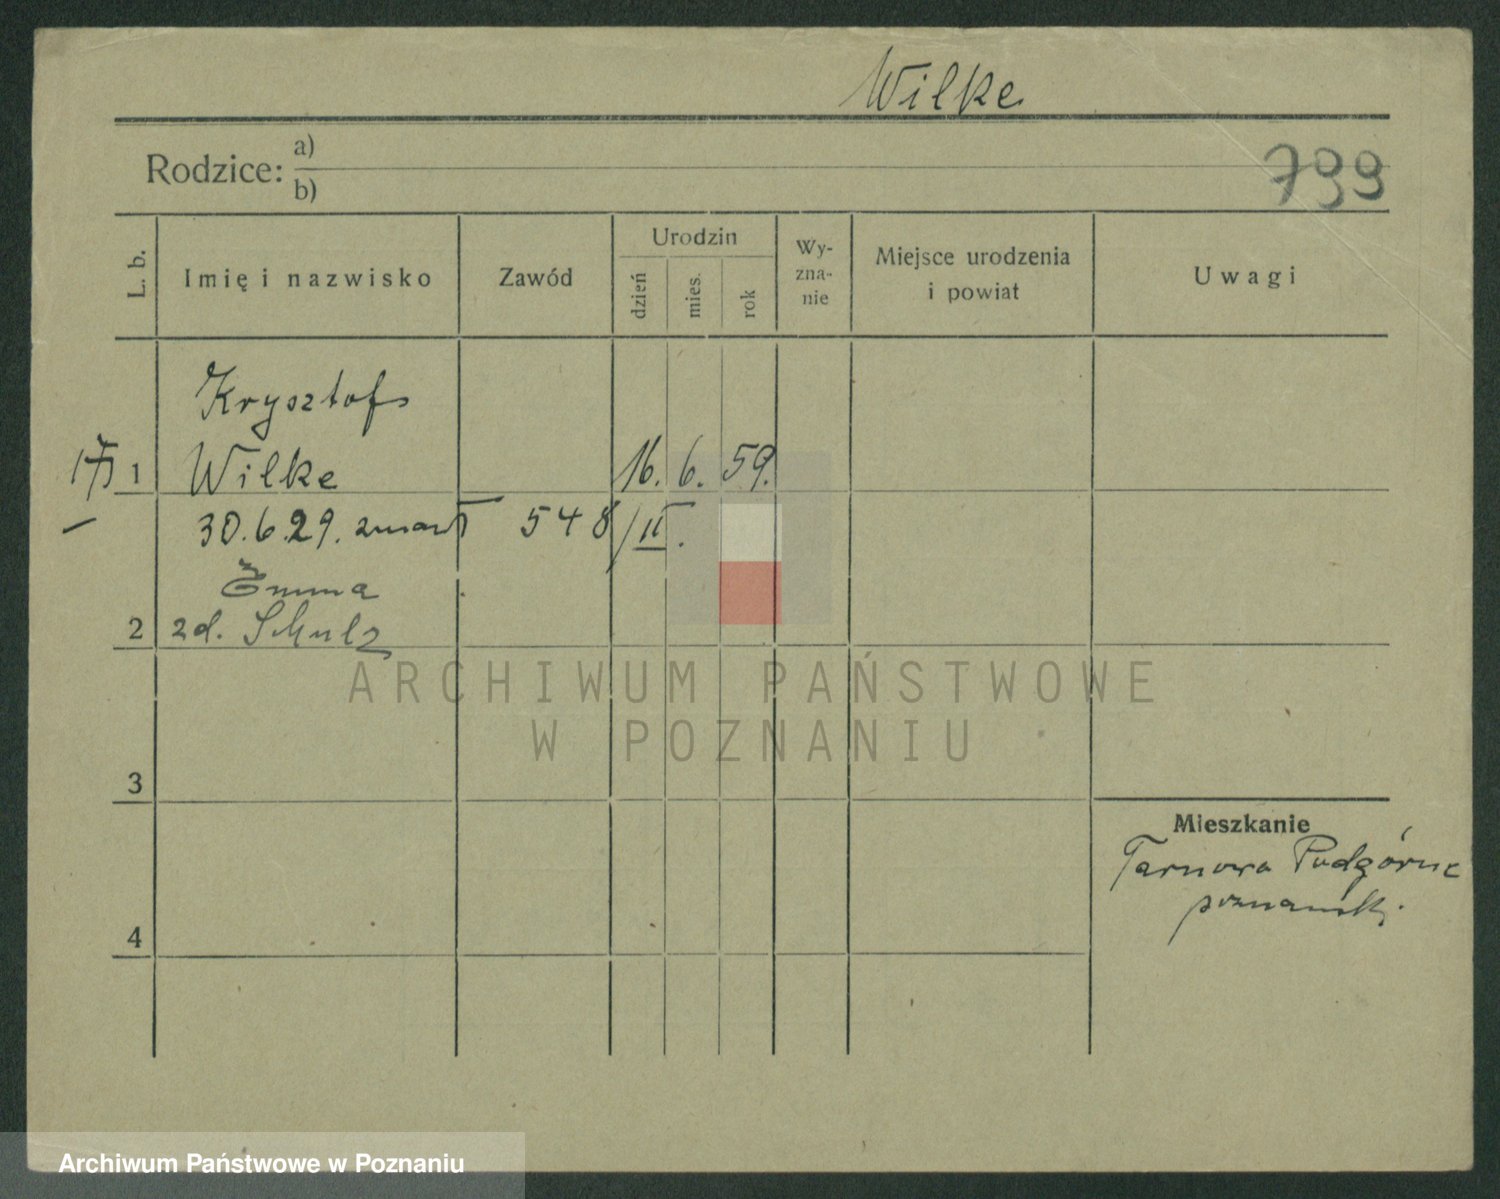 Wilke
Rodzice: a)
b)
799
L. b.
Imię i nazwisko
Zawód
Urodzin
dzień
mies.
rok
Wy-
zna-
nie
Miejsce urodzenia
i powiat
Uwagi
Krysztof
1 Wilke 16. 6. 59.
30.6.29. zmarł 548/II.
Emma
2 zd. Schulz
3
4
Mieszkanie
Tarnowo Podgórne
poznański.
ARCHIWUM PAŃSTWOWE
W POZNANIU
Archiwum Państwowe w Poznaniu